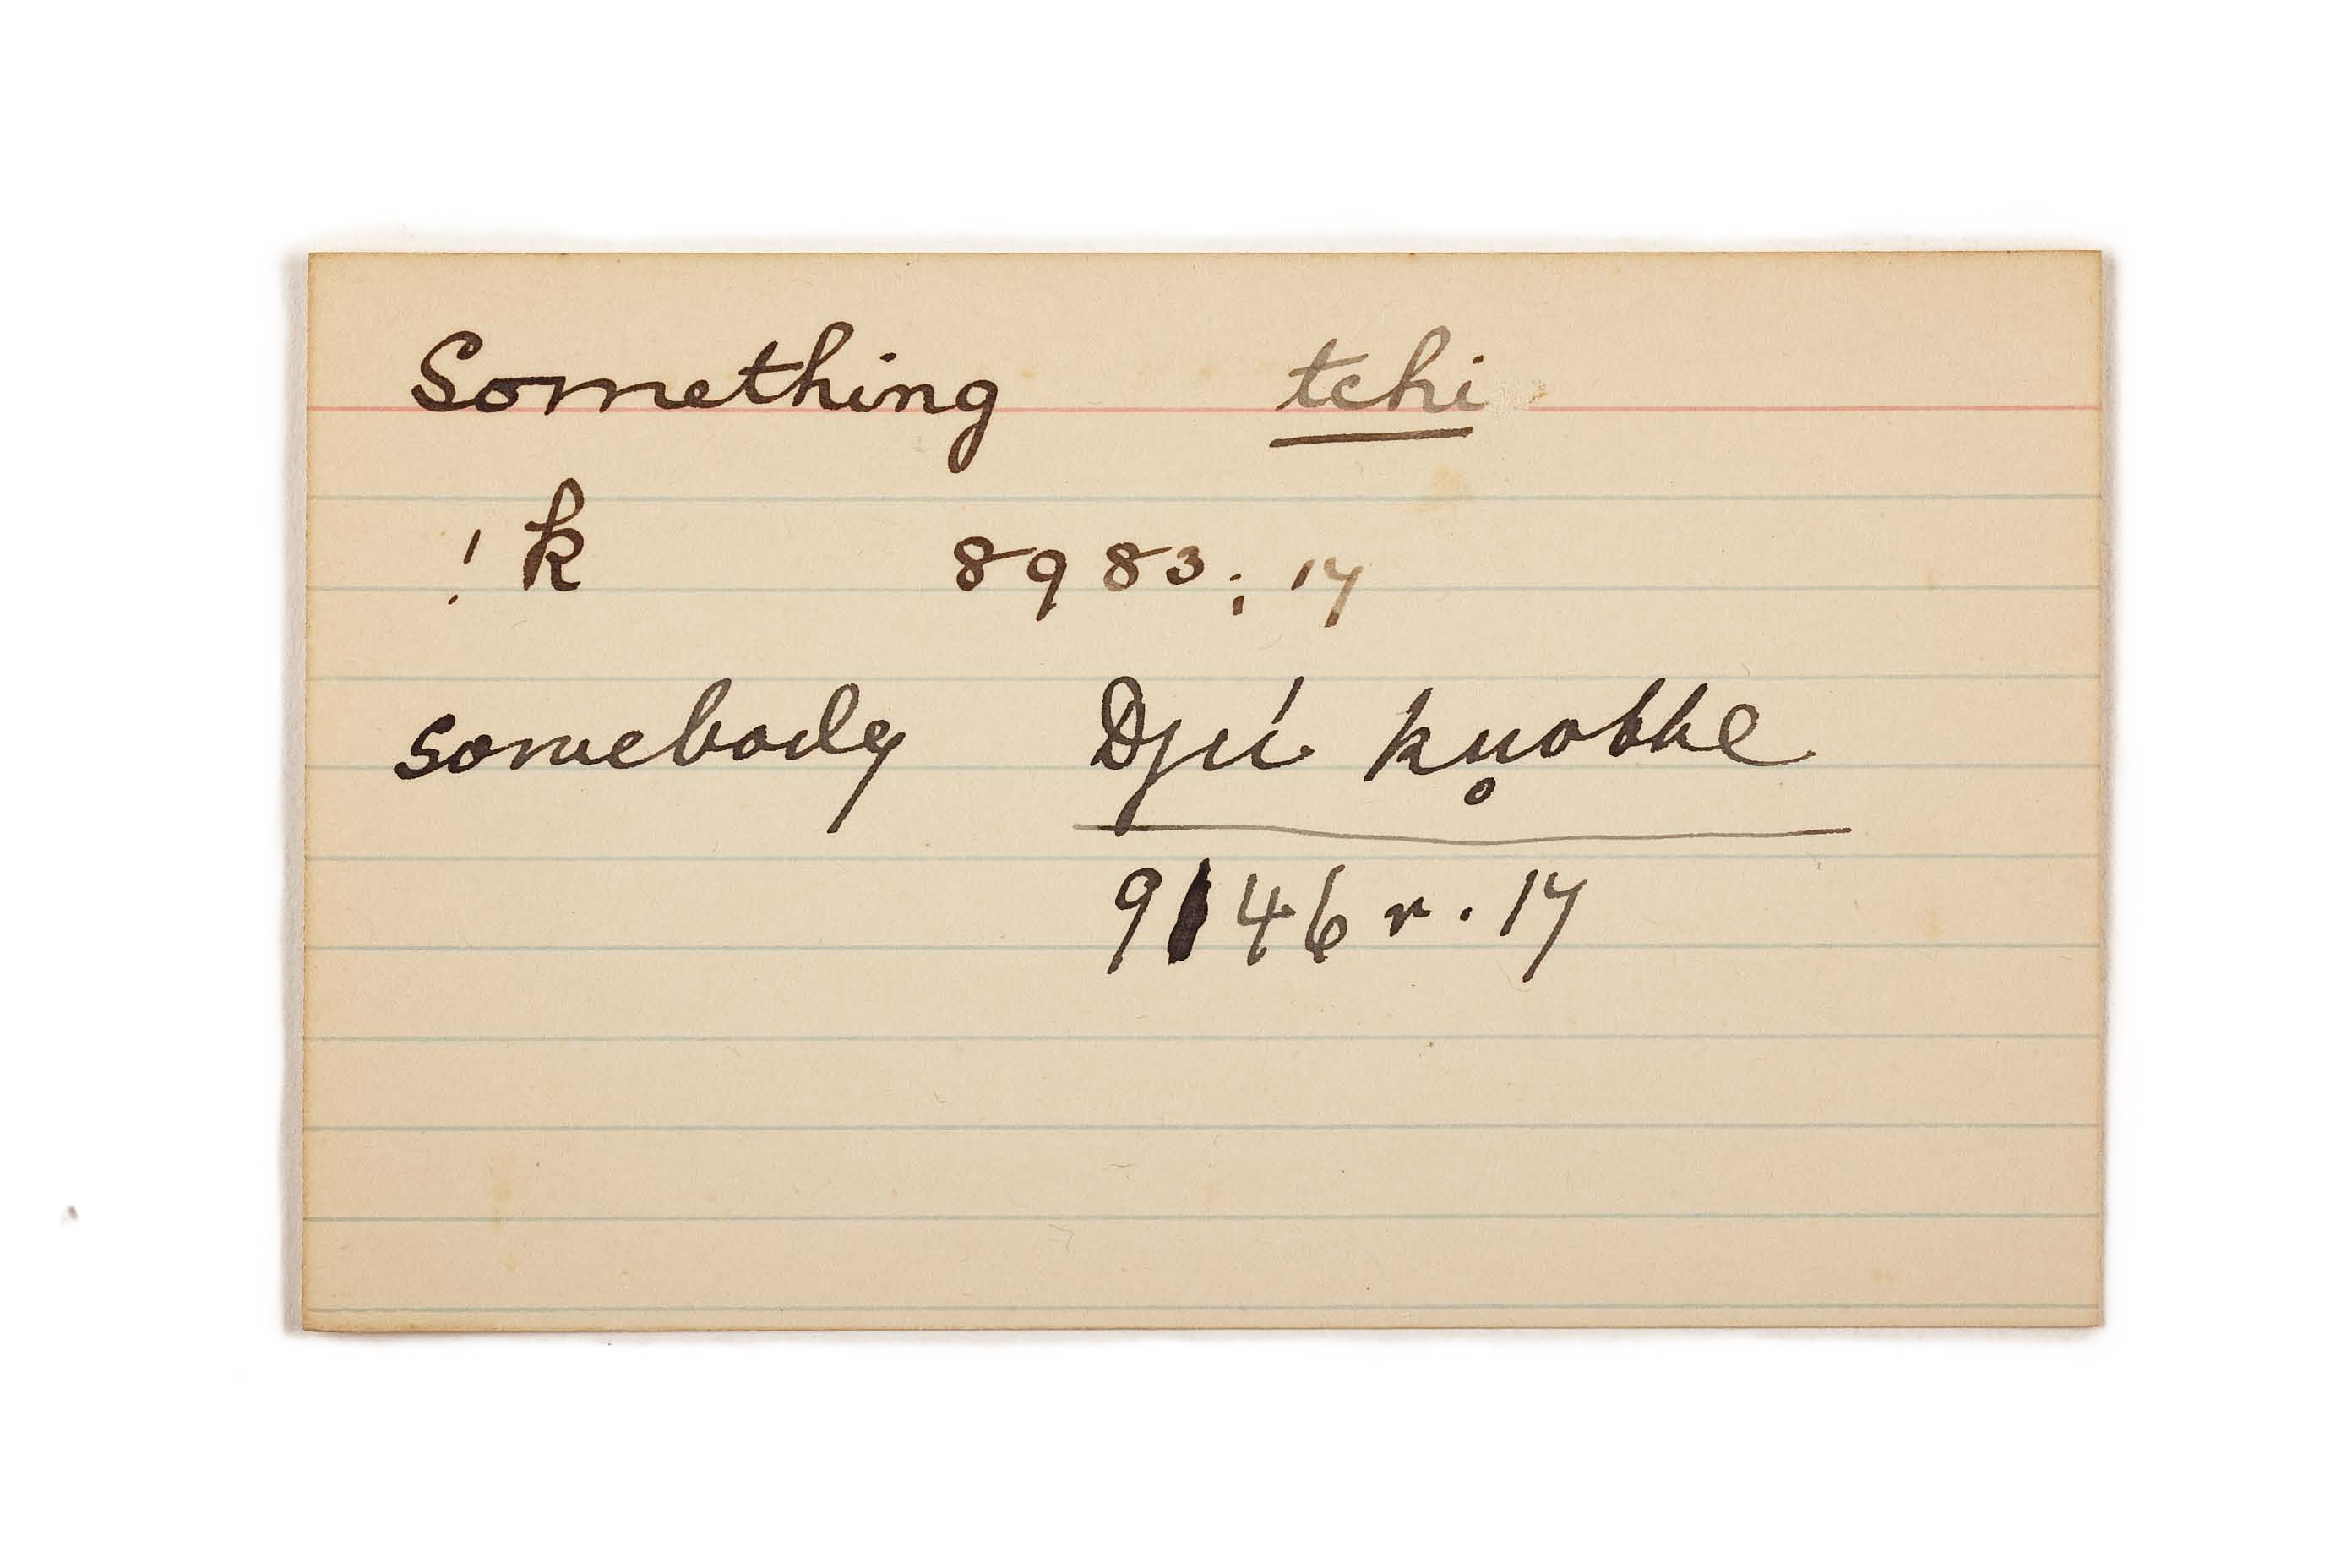 Something tchi
!k 8983; 17
somebody Djú
9146 r. 17